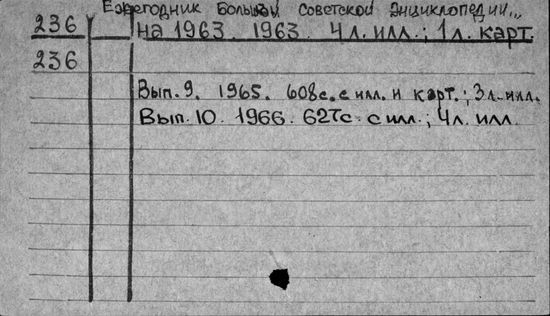 Ежегодник Большой Советской Энциклопедии...
236 на 1963. 1963. 4л. илл.; 1л. карт.
236
Вып. 9. 1965. 608с. с илл. и карт.; 3л. илл.
Вып. 10. 1966. 627с. с илл.; 4л. илл.